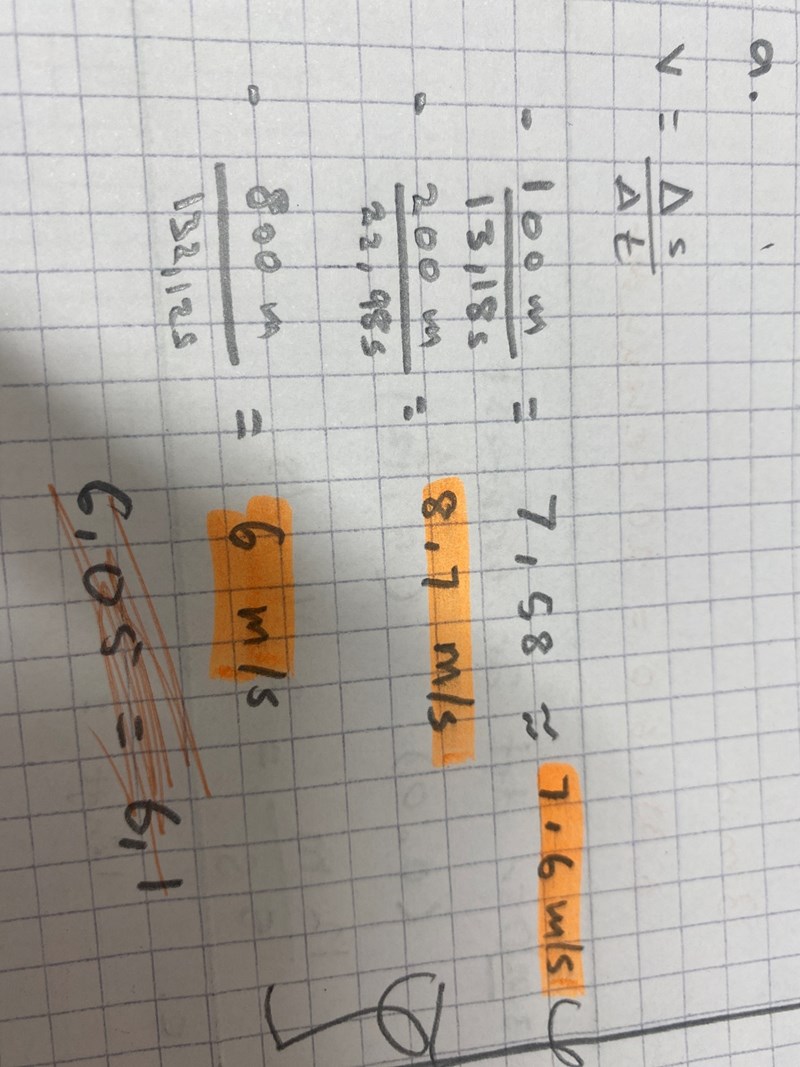 a.
v = Δs / Δt
• 100 m / 13,18s = 7,58 ≈ 7,6 m/s
• 200 m / 22,98s = 8,7 m/s
• 800 m / 132,12s = 6 m/s
6,05 = 6,1